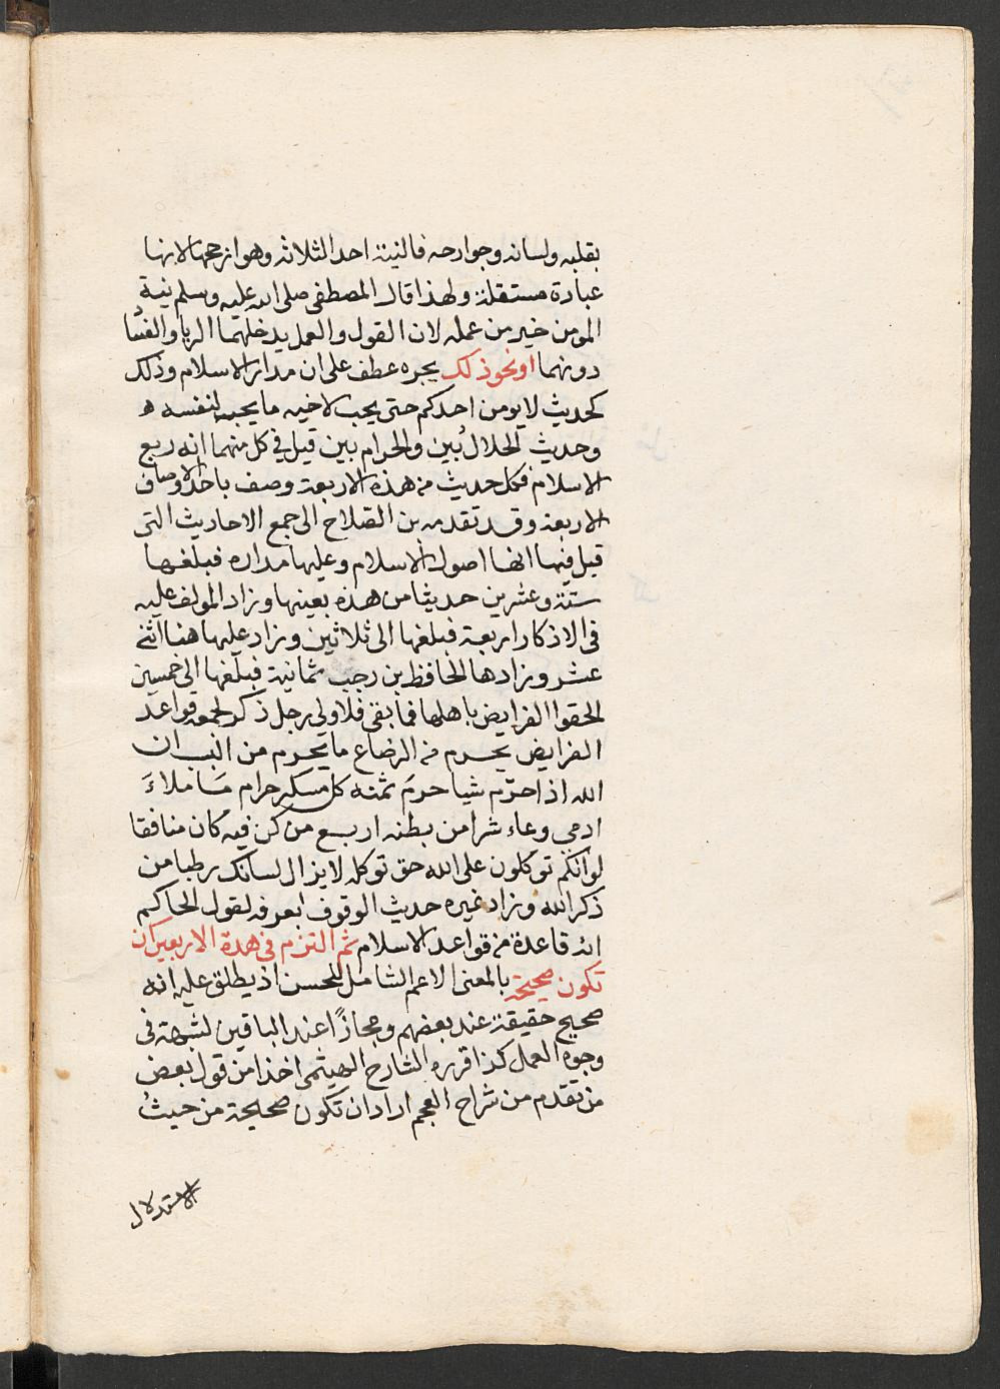 بقلبه ولسانه وجوارحه فالنية احد الثلاثه وهو ارجحها لانها
عبادة مستقلة ولهذا قال المصطفى صلى الله عليه وسلم نية
المومن خير من عمله لان القول والعمل يدخلهما الريا والفسا
دونهما او نحو ذلك بجره عطف على ان مدار الاسلام وذلك
كحديث لا يومن احدكم حتى يحب لاخيه ما يحبه لنفسه ه
وحديث الحلال بين والحرام بين قيل في كل منهما انه ربع
الاسلام فكل حديث من هذه الاربعة وصف باحد الاوصاف
الاربعة وقد تقدمه بن الصلاح الى جمع الاحاديث التى
قيل فيها انها اصول الاسلام وعليها مداره فبلغها
ستة وعشرين حديثا من هذه بعينها وزاد المولف عليه
فى الاذكار اربعة فبلغها الى ثلاثين وزاد عليها هنا اثنى
عشر وزادها الحافظ بن رجب ثمانية فبلغها الى خمسين
الحقوا الفرايض باهلها فما بقى فلاولى رجل ذكر لجمعه قواعد
الفرايض يحرم من الرضاع ما يحرم من النسب ان
الله اذا حرّم شيا حرم ثمنه كل مسكر حرام مَا ملاءَ
ادمي وعاء شرا من بطنه اربع من كن فيه كان منافقا
لو انكم توكلون على الله حق توكله لا يزال لسانك رطبا من
ذكر الله وزاد غيره حديث الوقوف بعرفه لقول الحاكم
انه قاعدة من قواعد الاسلام ثم التزم فى هذة الاربعين ان
تكون صحيحة بالمعنى الاعم الشامل للحسن اذ يطلق عليه انه
صحيح حقيقة عند بعضهم ومجازًا عند الباقين لشبهة فى
وجوه العمل كذا قرره الشارح الهيتمى اخذا من قول بعض
من تقدم من شراح العجم اراد ان تكون صحيحة من حيثُ
الاستدلال